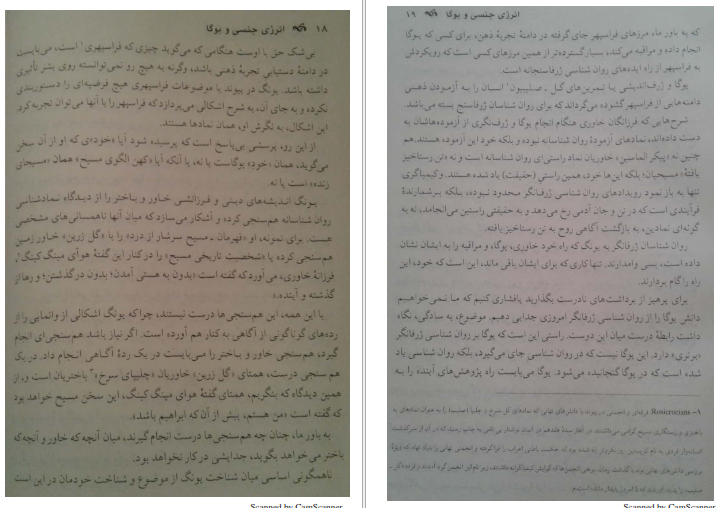 ۱۸ انرژی جنسی و یوگا
بی‌شک حق با اوست هنگامی که می‌گوید چیزی که فراسپهری۱ است، می‌بایست
در دامنهٔ دستیابی تجربهٔ ذهنی باشد، وگرنه به هیچ رو نمی‌توانسته روی بشر تأثیری
داشته باشد. یونگ در پیوند با موضوعات فراسپهری هیچ فرضیه‌ای را دستوربندی
نکرده و به جای آن، به شرح اشکالی می‌پردازد که فراسپهر را با آنها می‌توان تجربه کرد.
این اشکال، به نگرش او، همان نمادها هستند.
از این رو، پرسشی بی‌پاسخ است که پرسیده شود آیا «خود»ی که او از آن سخن
می‌گوید، همان «خود» یوگاست یا نه، یا آنکه آیا «کهن الگوی مسیح» همان «مسیحای
زنده» است یا نه.
یونگ اندیشه‌های دینی و فرزانشی خاور و باختر را از دیدگاه نمادشناسی
روان شناسانه هم‌سنجی کرده و آشکار می‌سازد که میان آنها ناهمسانی‌های مشخصی
هست. برای نمونه، او «قهرمان ـ مسیح سرشار از درد» را با «گل زرین» خاور زمین
هم‌سنجی کرده یا «شخصیت تاریخی مسیح» را در کنار این گفتهٔ هوآی مینگ کینگ،
فرزانهٔ خاوری، می‌آورد که گفته است «بدون به هستی آمدن؛ بدون درگذشتن؛ و رها از
گذشته و آینده.»
با این همه، این هم‌سنجی‌ها درست نیستند، چرا که یونگ اشکالی از وانمایی را از
رده‌های گوناگونی از آگاهی به کنار هم آورده است. اگر نیاز باشد هم‌سنجی‌ای انجام
گیرد، هم‌سنجی خاور و باختر را می‌بایست در یک ردهٔ آگاهی انجام داد. در یک
هم سنجی درست، همتای «گل زرین» خاوریان «چلیپای سرخ»۲ باختریان است و، از
همین دیدگاه که بنگریم، همتای گفتهٔ هوآی مینگ کینگ، این سخن مسیح خواهد بود
که گفته است «من هستم، پیش از آن که ابراهیم باشد.»
به باور ما، چنان چه هم‌سنجی‌ها درست انجام گیرند، میان آنچه که خاور و آنچه که
باختر می‌خواهد بگوید، جدایشی در کار نخواهد بود.
ناهمگونی اساسی میان شناخت یونگ از موضوع و شناخت خودمان در این است
Scanned by CamScanner
انرژی جنسی و یوگا ۱۹
که به باور ما، مرزهای فراسپهر جای گرفته در دامنهٔ تجربهٔ ذهن، برای کسی که یوگا
انجام داده و مراقبه می‌کند، بسیار گسترده‌تر از همین مرزهای کسی است که رویکردش
به فراسپهر از راه ایده‌های روان شناسی ژرفاسنجانه است.
یوگا و ژرف‌اندیشی با تمرین‌های گل ـ صلیبیون۱ انسان را به آزمودن ذهنی
دامنه‌هایی از فراسپهر گشوده می‌گرداند که برای روان شناسان ژرفاسنج بسته می‌باشد.
شرح‌هایی که فرزانگان خاوری هنگام انجام یوگا و ژرف‌نگری از آزموده‌هاشان به
دست داده‌اند، نمادهای آزمودهٔ روان شناسانه نبوده و بلکه خود این آزموده هستند. هم
چنین نه «پیکر الماسین» خاوریان نماد راستی‌ای روان شناسانه است و نه «تن رستاخیز
یافته» مسیحیان؛ بلکه این ها خود، همین راستی (حقیقت) یاد شده هستند. وکیمیاگری
تنها به باز نمود رویدادهای روان شناسی ژرفانگر محدود نبوده، و بلکه برشمارندهٔ
فرآیندی است که در تن و جان آدمی رخ می‌دهد و به حقیقتی راستین می‌انجامد، نه به
گونه‌ای نمادین، به بازگشت آگاهی روح به تن رستاخیز یافته.
روان شناسان ژرفانگر به یونگ که راه خرد خاوری، یوگا، و مراقبه را به ایشان نشان
داده است، بسی وامدارند. تنها کاری که برای ایشان باقی مانده، این است که خود، این
راه را گام بردارند.
برای پرهیز از برداشت‌های نادرست بگذارید پافشاری کنیم که ما نمی‌خواهیم
دانش یوگا را از روان شناسی ژرفانگر امروزی جدایی دهیم. موضوع، به سادگی، نگاه
داشت رابطهٔ درست میان این دوست. راستی این است که یوگا بر روان شناسی ژرفانگر
«برتری» دارد. این یوگا نیست که در روان شناسی جای می‌گیرد، بلکه روان شناسی یاد
شده است که در یوگا گنجانیده می‌شود. یوگا می‌بایست راه پژوهش‌های آینده را به
۱– Rosicrucians
Scanned by CamScanner